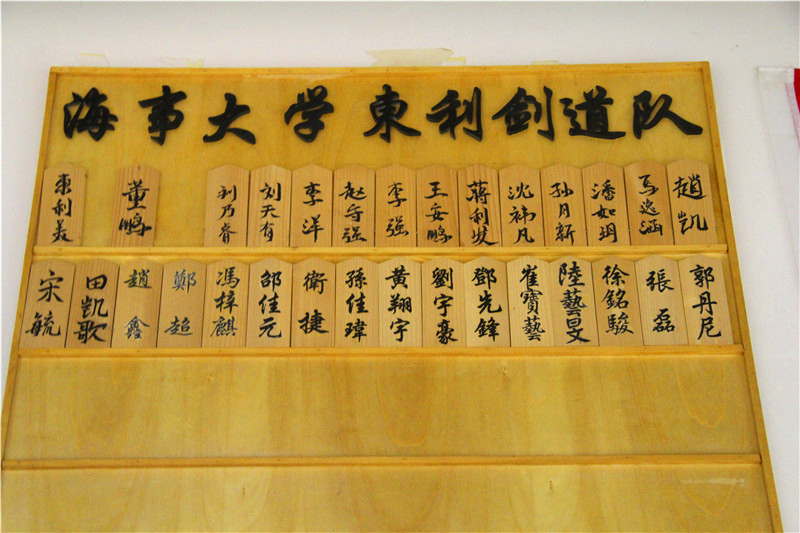 海事大学東利剑道队
東利美 董鹏 刘乃睿 刘天有 李洋 赵守强 李强 王安鹏 蔣利发 沈祎凡 孙月新 潘如玥 马逸涵 趙凯
宋毓 田凯歌 趙鑫 鄭超 馮梓麒 邵佳元 衛捷 孫佳瑋 黄翔宇 劉宇豪 鄧光鋒 崔寶藝 陸藝旻 徐銘駿 張磊 郭丹尼